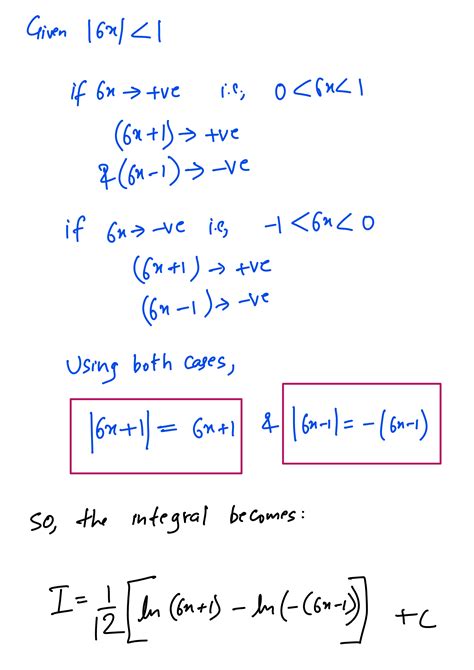 Given |6x| < 1
if 6x → +ve i.e, 0 < 6x < 1
(6x+1) → +ve
& (6x-1) → -ve
if 6x → -ve i.e, -1 < 6x < 0
(6x+1) → +ve
(6x-1) → -ve
Using both cases,
|6x+1| = 6x+1 & |6x-1| = -(6x-1)
So, the integral becomes:
I = 1/12 [ln (6x+1) - ln (-(6x-1))] + c